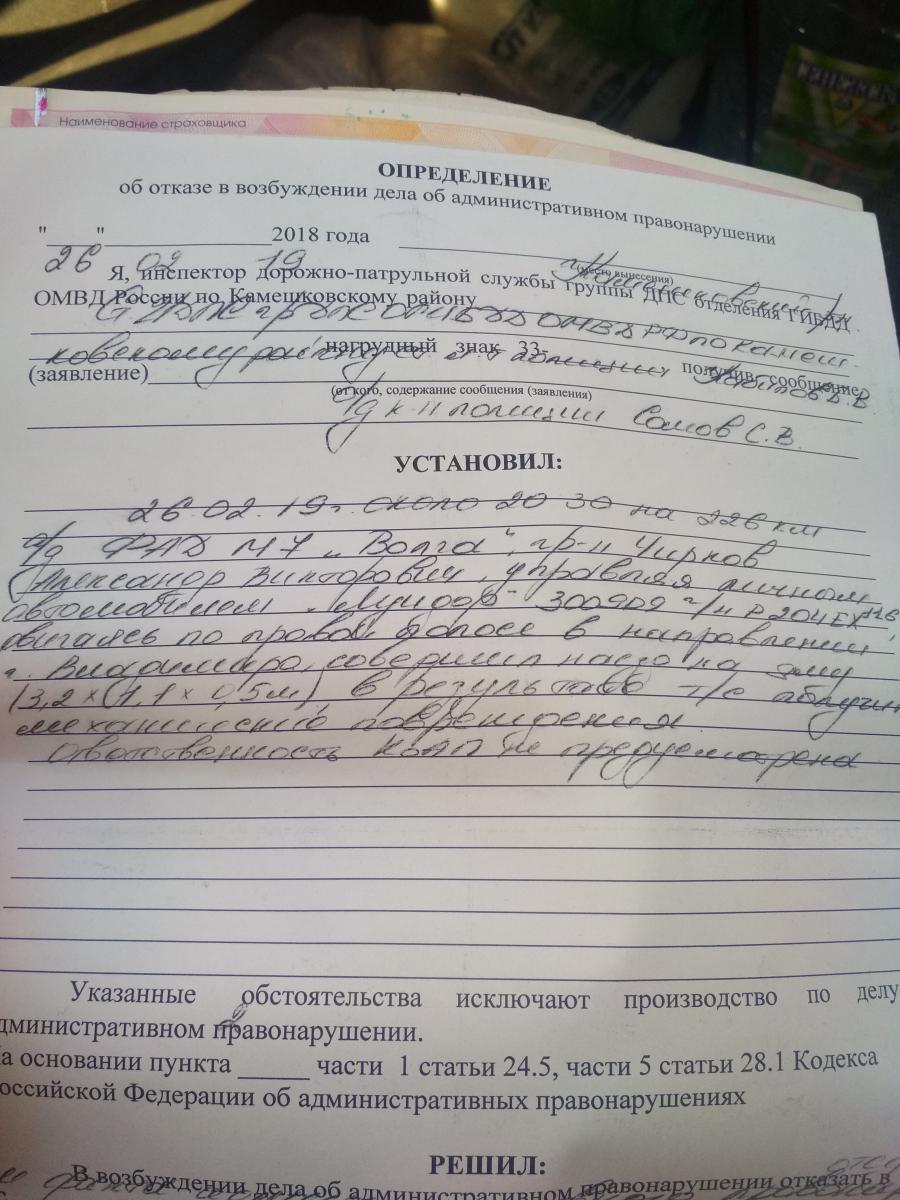 СЕНЕЖСК
Наименование страховщика
ОПРЕДЕЛЕНИЕ
об отказе в возбуждении дела об административном правонарушении
"____"______________2018 года
26 02 19
(место вынесения)
Я, инспектор дорожно-патрульной службы группы ДПС отделения ГИБДД
ОМВД России по Камешковскому району
ОМВД РФ по Камеш
ковскому району
нагрудный знак 33-
получив сообщение
(заявление)
(от кого, содержание сообщения (заявления)
к-н полиции Сомов С.В.
УСТАНОВИЛ:
26.02.19г. около 20 30 на 226 км
а/д ФАД М7 „Волга", гр-н Чирков
Александр Викторович, управляя личным
автомобилем 300909 г/н Р204ЕХ
двигаясь по правой полосе в направлении
г. Владимира, совершил наезд на яму
(3,2 х 1,1 х 0,5м), в результате т/с
механические повреждения
Ответственность КоАП не предусмотрена
Указанные обстоятельства исключают производство по делу
дминистративном правонарушении.
а основании пункта 2 части 1 статьи 24.5, части 5 статьи 28.1 Кодекса
оссийской Федерации об административных правонарушениях
РЕШИЛ:
В возбуждении дела об административном правонарушении отказать в